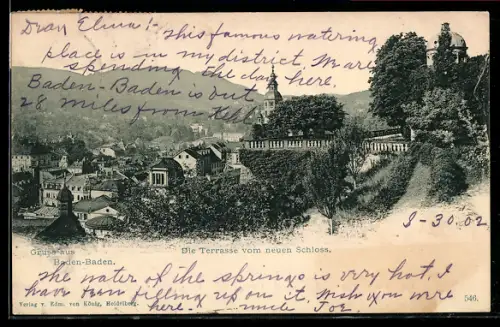 Dear Elma!- This famous watering
place is in my district, Marc
spending the day here,
Baden-Baden is out
28 miles from Kehl
8-30.02
Gruss aus
Baden-Baden.
Die Terrasse vom neuen Schloss.
The water of the springs is very hot, I
have been filling up on it, Wish you were
here.
Verlag v. Edm. von König, Heidelberg.
546.